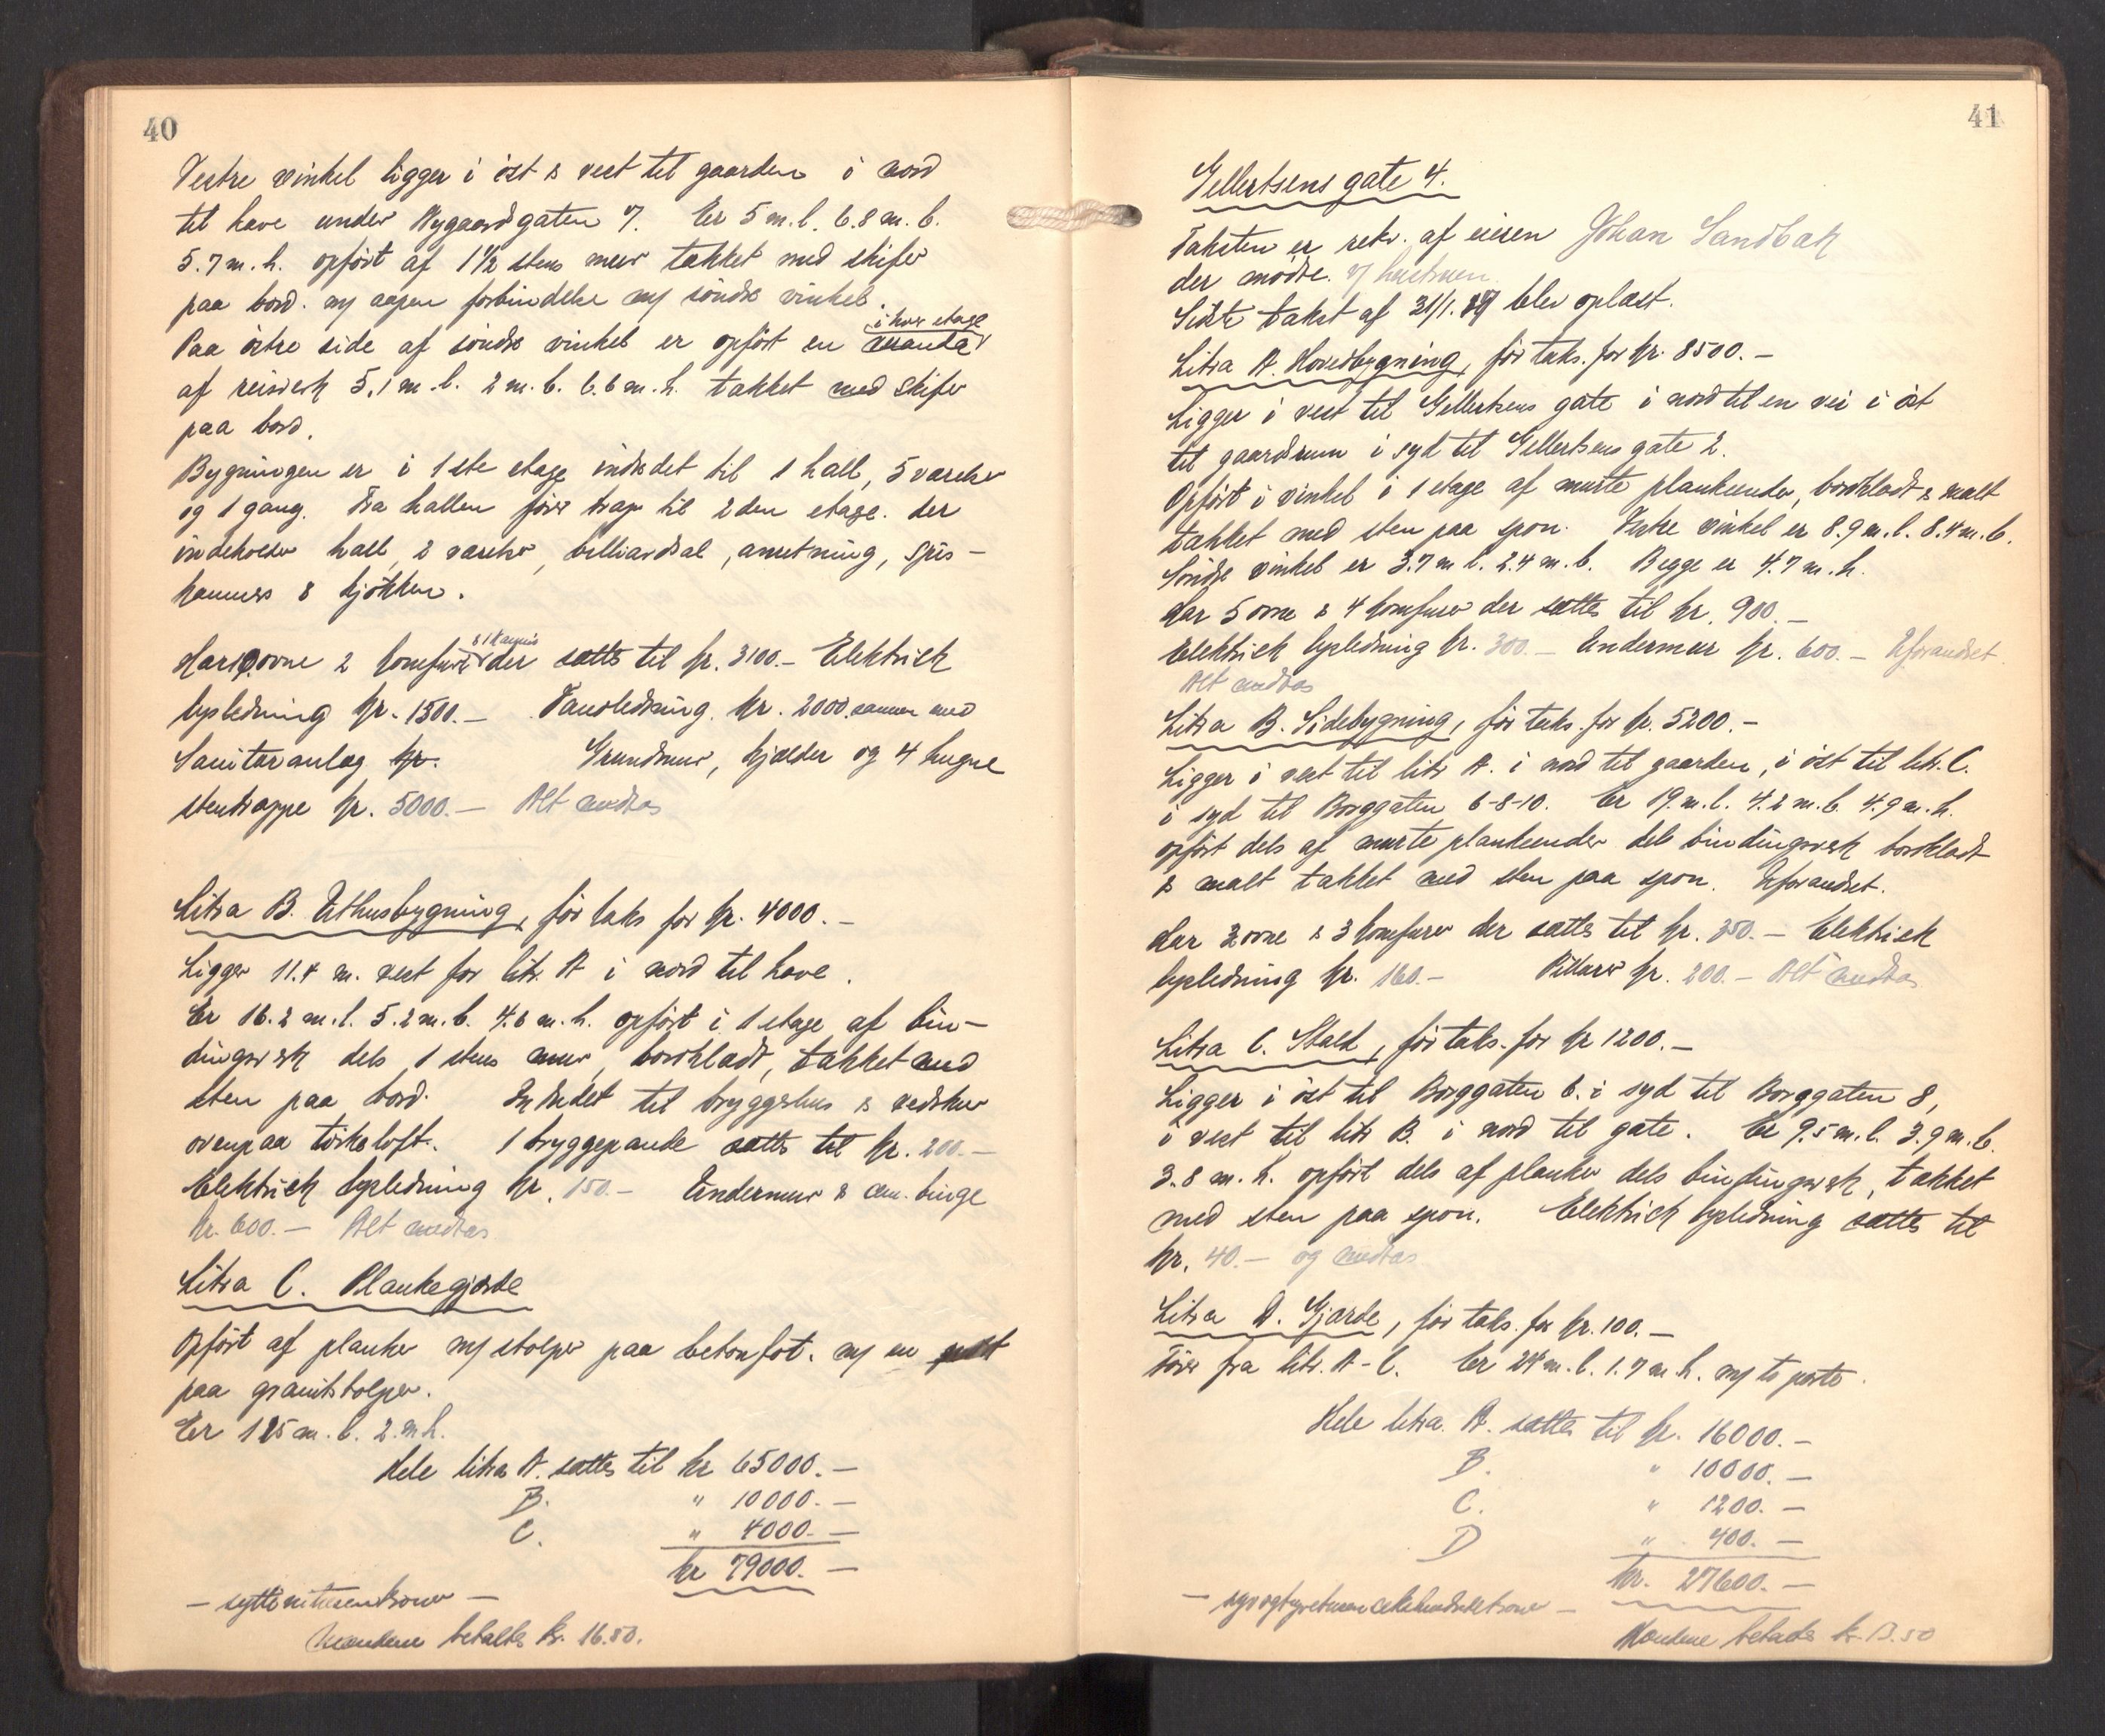 40
Vestre vinkel ligger i øst & vest til gaarden i nord
til have under Nygaardgaten 7. Er 5 m. l. 6.8 m. b.
5.7 m. h. opført af 1½ stens mur tækket med skifer
paa bord. m/ aapen forbindelse m/ søndre vinkel.
i hver etage
Paa østre side af søndre vinkel er opført en veranda
af reisverk 5,1 m. l. 2 m. b. 6.6 m. h. tækket med skifer
paa bord.
Bygningen er i 1ste etage indredet til 1 hall, 5 værelser
og 1 gang. Fra hallen fører trap til 2den etage. der
indeholder hall, 2 værelser, billiardsal, anretning, spis-
kammers & kjøkken.
& 1 kamin
Har 10 ovne 2 komfurer der sættes til kr. 3100.- Elektrisk
lysledning kr. 1500.- Vandledning kr. 2000. sammen med
Sanitæranlæg kr. Grundmur, kjælder og 4 hugne
stentrappe kr. 5000.- Alt medtas
Litra B. Uthusbygning, før taks for kr. 4000.-
Ligger 11.4 m. vest for litr. A i nord til have.
Er 16.2 m. l. 5.2 m. b. 4.6 m. h. opført i 1 etage af bin-
dingsverk dels 1 stens mur, bordklædt, tækket med
sten paa bord. Indredet til bryggerhus & vedskur
ovenpaa tørkeloft. 1 bryggepande sættes til kr. 200.-
Elektrisk lysledning kr. 150.- Undermur & cem. binge
kr. 600.- Alt medtas
Litra C. Plankegjærde
Opført af planker m/ stolper paa betonfot. m/ en port
paa granitstolper.
Er 125 m. l. 2 m. h.
Hele litra A. sættes til kr 65000.-
B. " 10000.-
C. " 4000.-
kr 79000.-
- syttinitusenkroner -
Mændene betaltes kr. 16.50.
41
Gellertsens gate 4.
Taksten er rekv. af eieren Johan Sandbak
der mødte v/ hustruen
Sidste takst af 31/1. 87 blev oplæst.
Litra A. Hovedbygning, før taks. for kr. 8500.-
Ligger i vest til Gellertsens gate i nord til en vei i øst
til gaardsrum i syd til Gellertsens gate 2.
Opført i vinkel i 1 etage af murte plankeender, bordklædt & malt
tækket med sten paa spon. Vestre vinkel er 8.9 m. l. 8.4 m. b.
Søndre vinkel er 3.7 m l. 2.4 m. b. Begge er 4.7 m. h.
Har 5 ovne & 4 komfurer der sættes til kr. 900.-
Elektrisk lysledning kr. 300.- Undermur kr. 600.- Uforandret.
Alt medtas
Litra B. Sidebygning, før taks. for kr. 5200.-
Ligger i vest til litr A. i nord til gaarden, i øst til litr. C.
i syd til Borggaten 6-8-10. Er 19. m. l. 4.2 m. b. 4.9 m. h.
opført dels af murte plankeender dels bindingsverk bordklædt
& malt tækket med sten paa spon. Uforandret.
Har 3 ovne & 3 komfurer der sættes til kr. 350.- Elektrisk
lysledning kr. 160.- Pillarer kr. 200.- Alt medtas
Litra C. Stald, før taks. for kr 1200.-
Ligger i øst til Borggaten 6. i syd til Borggaten 8,
i vest til litr B. i nord til gate. Er 9.5 m. l. 3.9 m. b.
3.8 m. h. opført dels af planker dels bindingsverk, tækket
med sten paa spon. Elektrisk lysledning sættes til
kr. 40.- og medtas
Litra D. Gjærde, før taks. for kr. 100.-
Fører fra litr. A-C. Er 24 m. l. 1.7 m. h. m/ to porte.
Hele litra. A. sættes til kr. 16000.-
B. " 10000.-
C. " 1200.-
D " 400.-
kr. 27600.-
- syvogtyvetusensekshundredekroner -
Mændene betaltes kr. 13.50